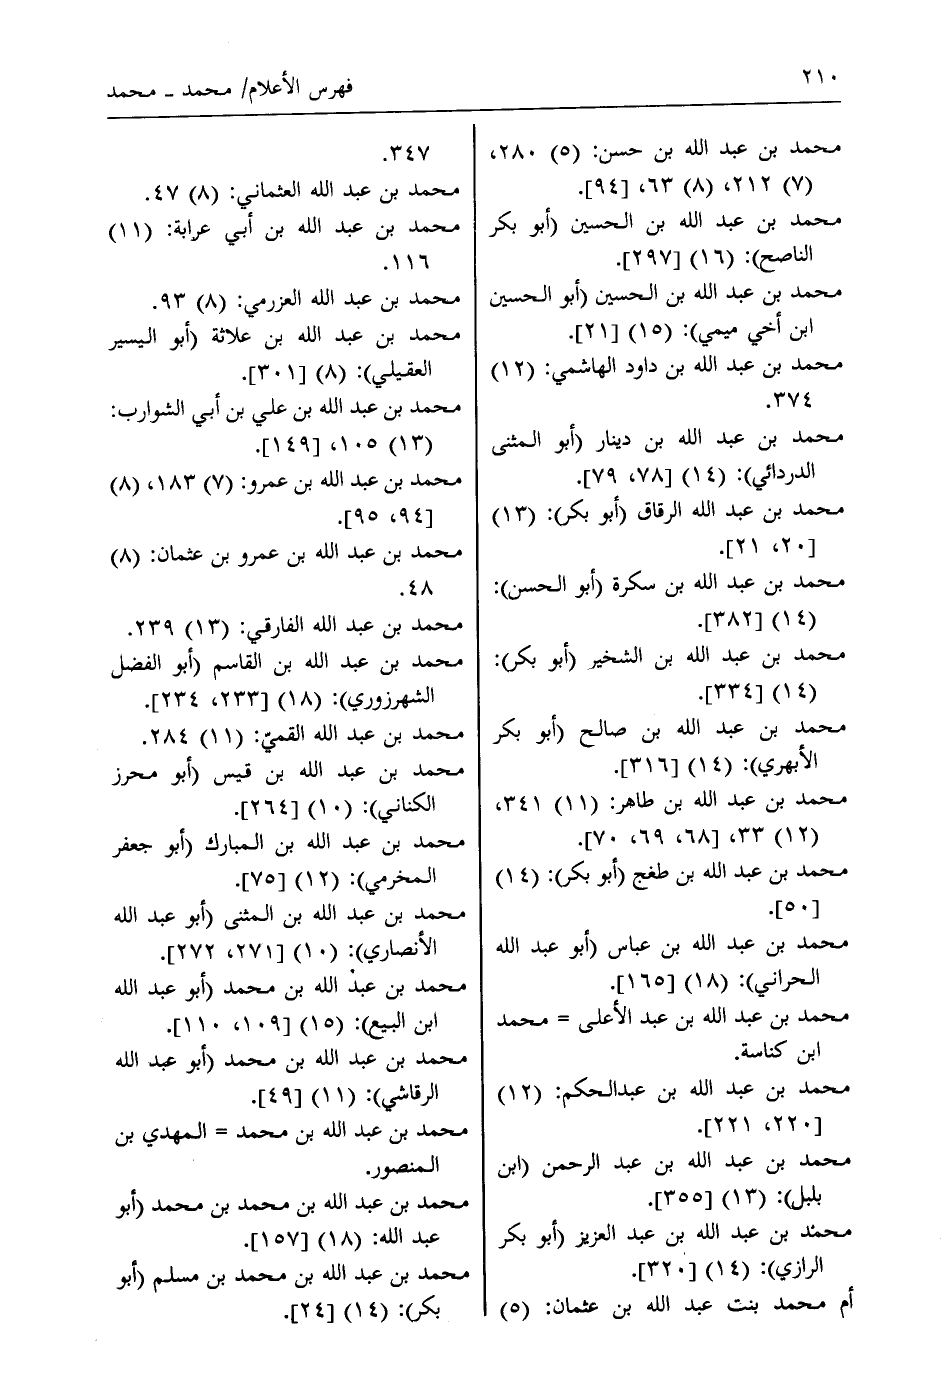 ٢١٠
فهرس الأعلام/ محمد ـ محمد
محمد بن عبد الله بن حسن: (٥) ٢٨٠،
(٧) ٢١٢، (٨) ٦٣، [٩٤].
محمد بن عبد الله بن الحسين (أبو بكر
الناصح): (١٦) [٢٩٧].
محمد بن عبد الله بن الحسين (أبو الحسين
ابن أخي ميمي): (١٥) [٢١].
محمد بن عبد الله بن داود الهاشمي: (١٢)
٣٧٤.
محمد بن عبد الله بن دينار (أبو المثنى
الدردائي): (١٤) [٧٨، ٧٩].
محمد بن عبد الله الرقاق (أبو بكر): (١٣)
[٢٠، ٢١].
محمد بن عبد الله بن سكرة (أبو الحسن):
(١٤) [٣٨٢].
محمد بن عبد الله بن الشخير (أبو بكر):
(١٤) [٣٣٤].
محمد بن عبد الله بن صالح (أبو بكر
الأبهري): (١٤) [٣١٦].
محمد بن عبد الله بن طاهر: (١١) ٣٤١،
(١٢) ٣٣، [٦٨، ٦٩، ٧٠].
محمد بن عبد الله بن طغج (أبو بكر): (١٤)
[٥٠].
محمد بن عبد الله بن عباس (أبو عبد الله
الحراني): (١٨) [١٦٥].
محمد بن عبد الله بن عبد الأعلى = محمد
ابن كناسة.
محمد بن عبد الله بن عبدالحكم: (١٢)
[٢٢٠، ٢٢١].
محمد بن عبد الله بن عبد الرحمن (ابن
بلبل): (١٣) [٣٥٥].
محمد بن عبد الله بن عبد العزيز (أبو بكر
الرازي): (١٤) [٣٢٠].
أم محمد بنت عبد الله بن عثمان: (٥)
٣٤٧.
محمد بن عبد الله العثماني: (٨) ٤٧.
محمد بن عبد الله بن أبي عرابة: (١١)
١١٦.
محمد بن عبد الله العزرمي: (٨) ٩٣.
محمد بن عبد الله بن علاثة (أبو اليسير
العقيلي): (٨) [٣٠١].
محمد بن عبد الله بن علي بن أبي الشوارب:
(١٣) ١٠٥، [١٤٩].
محمد بن عبد الله بن عمرو: (٧) ١٨٣، (٨)
[٩٤، ٩٥].
محمد بن عبد الله بن عمرو بن عثمان: (٨)
٤٨.
محمد بن عبد الله الفارقي: (١٣) ٢٣٩.
محمد بن عبد الله بن القاسم (أبو الفضل
الشهرزوري): (١٨) [٢٣٣، ٢٣٤].
محمد بن عبد الله القميّ: (١١) ٢٨٤.
محمد بن عبد الله بن قيس (أبو محرز
الكناني): (١٠) [٢٦٤].
محمد بن عبد الله بن المبارك (أبو جعفر
المخرمي): (١٢) [٧٥].
محمد بن عبد الله بن المثنى (أبو عبد الله
الأنصاري): (١٠) [٢٧١، ٢٧٢].
محمد بن عبد الله بن محمد (أبو عبد الله
ابن البيع): (١٥) [١٠٩، ١١٠].
محمد بن عبد الله بن محمد (أبو عبد الله
الرقاشي): (١١) [٤٩].
محمد بن عبد الله بن محمد = المهدي بن
المنصور.
محمد بن عبد الله بن محمد بن محمد (أبو
عبد الله: (١٨) [١٥٧].
محمد بن عبد الله بن محمد بن مسلم (أبو
بكر): (١٤) [٢٤].